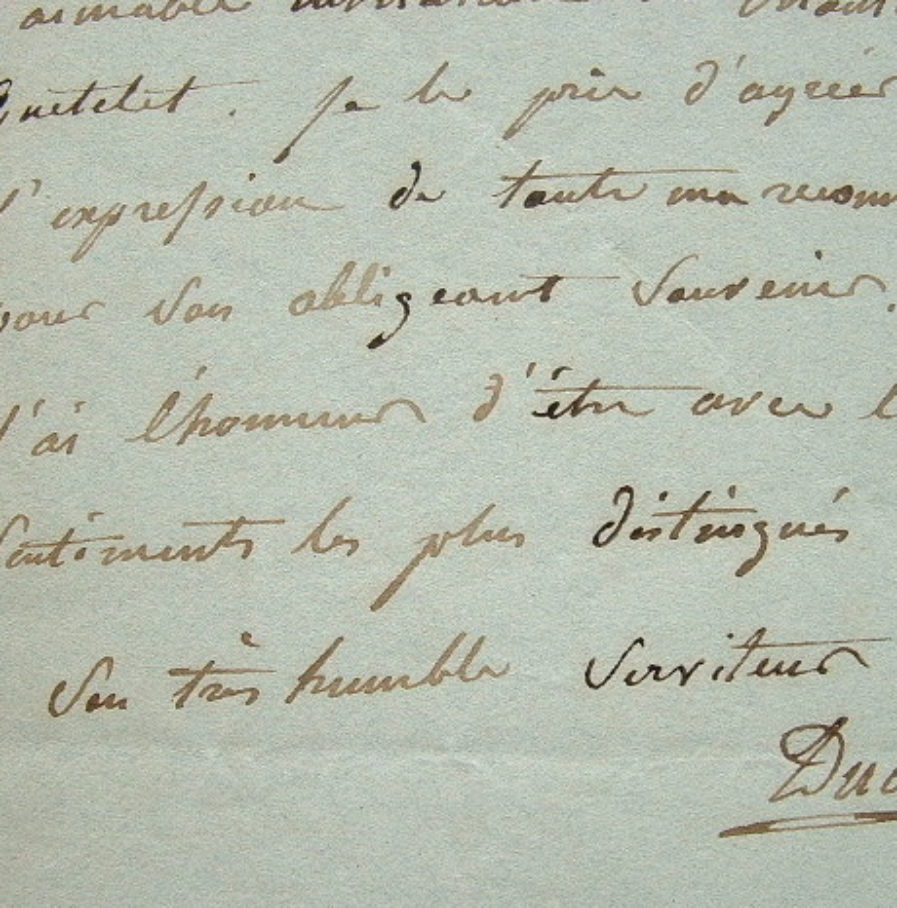 aimable invitation
Quételet. Je le prie d'agréer
l'expression de toute ma reconn
pour son obligeant souvenir.
J'ai l'honneur d'être avec l
sentiments les plus distingués
Son très humble serviteur
Duc